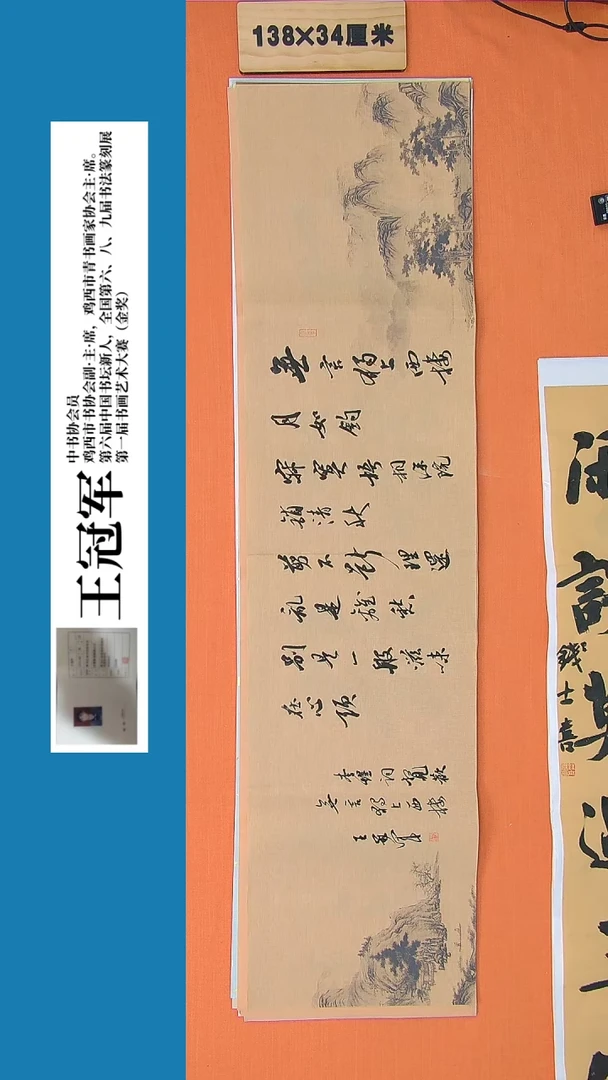 138×34厘米
王冠军
中书协会员
鸡西市书协会副·主·席，鸡西市青书画家协会主·席。
第六届中国书坛新人，全国第六、八、九届书法篆刻展
第一届书画艺术大赛（金奖）
無言獨上西樓
月如鈎
寂寞梧桐深院
鎖清秋
剪不斷理還
亂是離愁
別是一般滋味
在心頭
李煜詞
無言獨上西樓
王冠軍